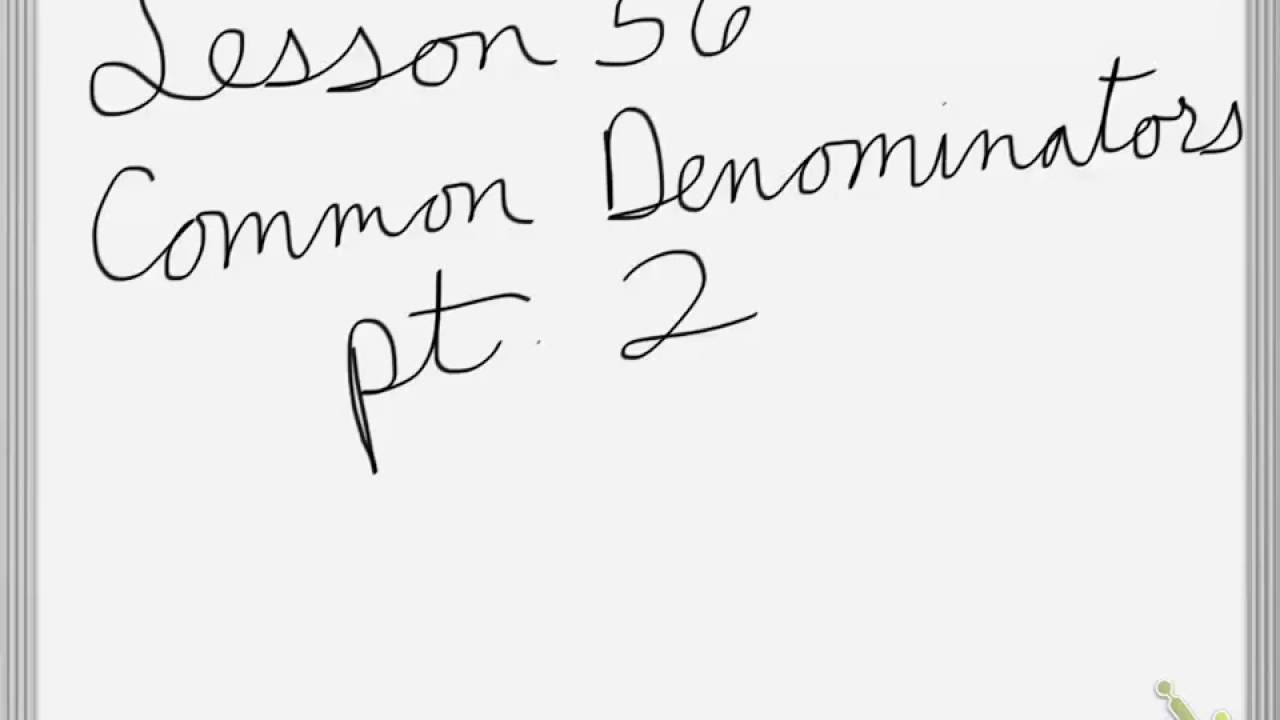 Lesson 56
Common Denominators
pt. 2